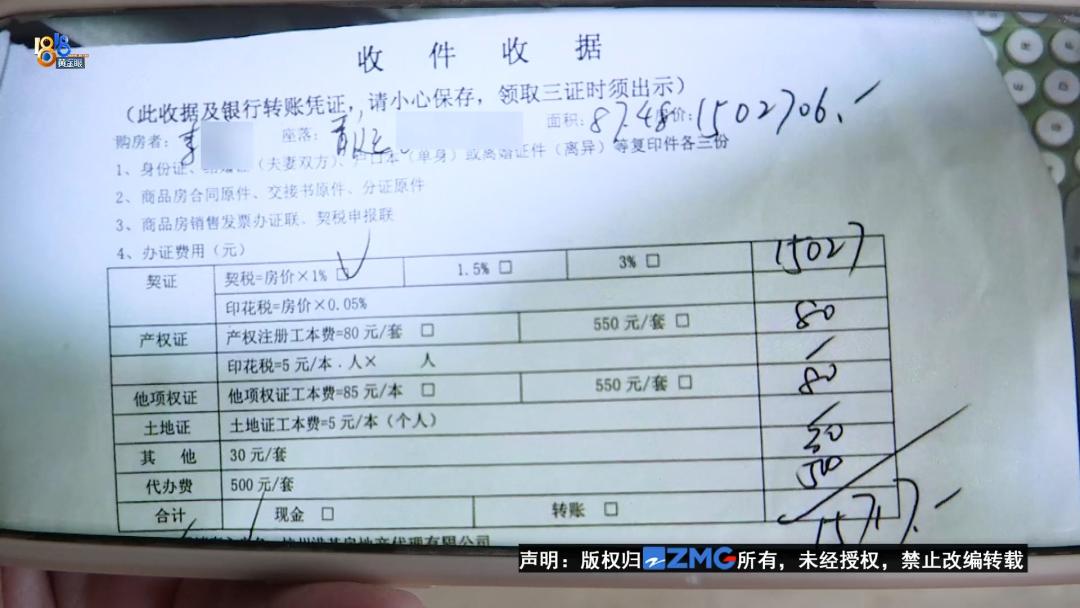 1818
黄金眼
收件收据
（此收据及银行转账凭证，请小心保存，领取三证时须出示）
购房者：李 座落： 面积：87.48 价：1502706.
1、身份证、结婚证（夫妻双方）、户口本（单身）或离婚证件（离异）等复印件各三份
2、商品房合同原件、交接书原件、分证原件
3、商品房销售发票办证联、契税申报联
4、办证费用（元）
契证 契税=房价×1% ☑ 1.5% □ 3% □ 15027
印花税=房价×0.05%
产权证 产权注册工本费=80 元/套 □ 550 元/套 □ 80
印花税=5 元/本．人× 人 /
他项权证 他项权证工本费=85 元/本 □ 550 元/套 □ 80
土地证 土地证工本费=5 元/本（个人） /
其 他 30 元/套 30
代办费 500 元/套 500
合计 现金 □ 转账 □ 15717.
房地产代理有限公司
声明：版权归ZMG所有，未经授权，禁止改编转载